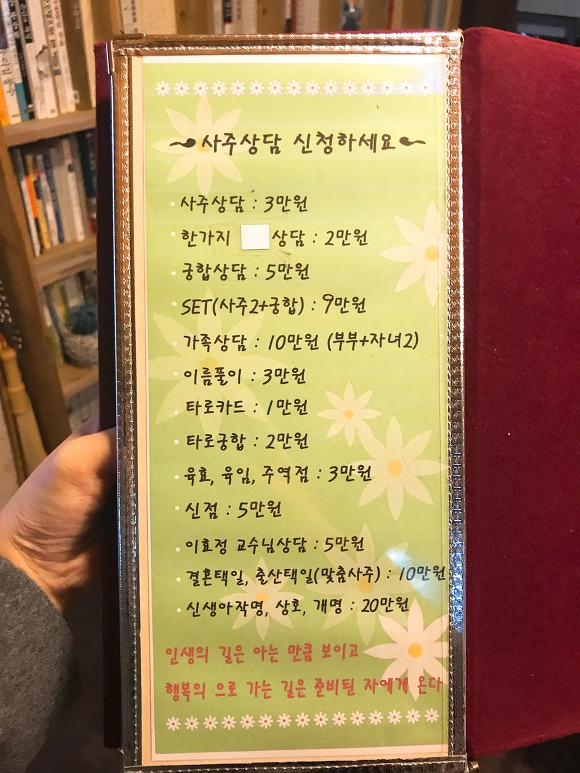 사주상담 신청하세요
사주상담 : 3만원
한가지 상담 : 2만원
궁합상담 : 5만원
SET(사주2+궁합) : 9만원
가족상담 : 10만원 (부부+자녀2)
이름풀이 : 3만원
타로카드 : 1만원
타로궁합 : 2만원
육효, 육임, 주역점 : 3만원
신점 : 5만원
이효정 교수님상담 : 5만원
결혼택일, 출산택일(맞춤사주) : 10만원
신생아작명, 상호, 개명 : 20만원
인생의 길은 아는 만큼 보이고
행복의 으로 가는 길은 준비된 자에게 온다